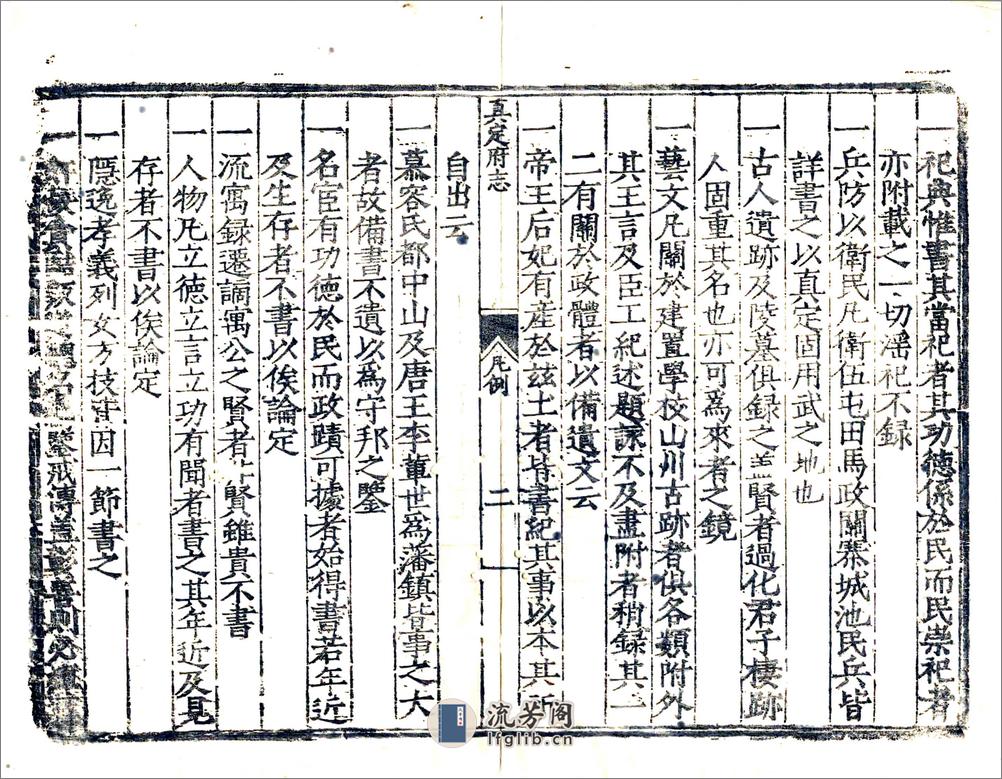 一祀典惟書其當祀者其功德係於民而民崇祀者
亦附載之一切淫祀不録
一兵防以衛民凡衛伍屯田馬政關寨城池民兵皆
詳書之以真定固用武之地也
一古人遺跡及陵墓俱録之盖賢者過化君子棲跡
人固重其名也亦可為來者之鏡
一藝文凡關於建置學校山川古跡者俱各類附外
其王言及臣工紀述題詠不及盡附者稍録其一
二有關於政體者以備遺文云
一帝王后妃有産於兹土者皆書紀其事以本其所
真定府志
凡例
二
自出云
一慕容氏都中山及唐王李董世為藩鎮皆事之大
者故備書不遺以為守邦之鑒
一名宦有功德於民而政蹟可據者始得書若年近
及生存者不書以俟論定
一流寓録遷謫寓公之賢者非賢雖貴不書
一人物凡立德立言立功有聞者書之其年近及見
存者不書以俟論定
一隱逸孝義列女方技皆因一節書之
一鑒戒傳盖彰善則必
流芳阁
lfglib.cn